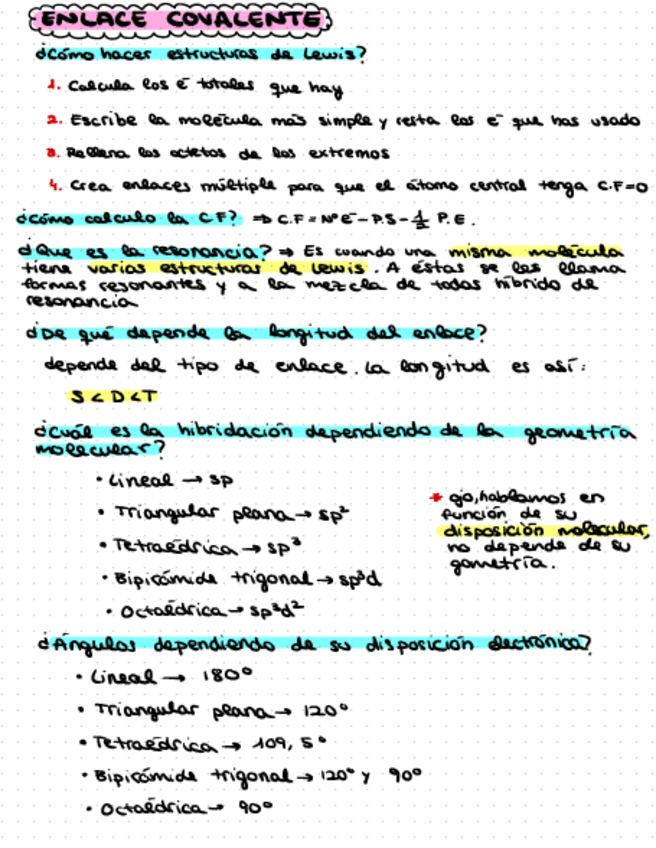 ENLACE COVALENTE
¿Cómo hacer estructuras de Lewis?
1. Calcula los e⁻ totales que hay
2. Escribe la molécula más simple y resta los e⁻ que has usado
3. Rellena los octetos de los extremos
4. Crea enlaces múltiple para que el átomo central tenga C.F=0
¿Cómo calculo la C.F? ⇒ C.F = Nº e⁻ - P.S - 1/2 P.E.
¿Que es la resonancia? ⇒ Es cuando una misma molécula
tiene varias estructuras de Lewis. A éstas se les llama
formas resonantes y a la mezcla de todas híbrido de
resonancia
¿De qué depende la longitud del enlace?
depende del tipo de enlace. La longitud es así:
S < D < T
¿Cuál es la hibridación dependiendo de la geometría
molecular?
• Lineal → sp
• Triangular plana → sp²
• Tetraédrica → sp³
• Bipirámide trigonal → sp³d
• Octaédrica → sp³d²
* ojo, hablamos en
función de su
disposición molecular,
no depende de su
gometría.
¿Ángulos dependiendo de su disposición electrónica?
• Lineal → 180º
• Triangular plana → 120º
• Tetraédrica → 109, 5º
• Bipirámide trigonal → 120º y 90º
• Octaédrica → 90º